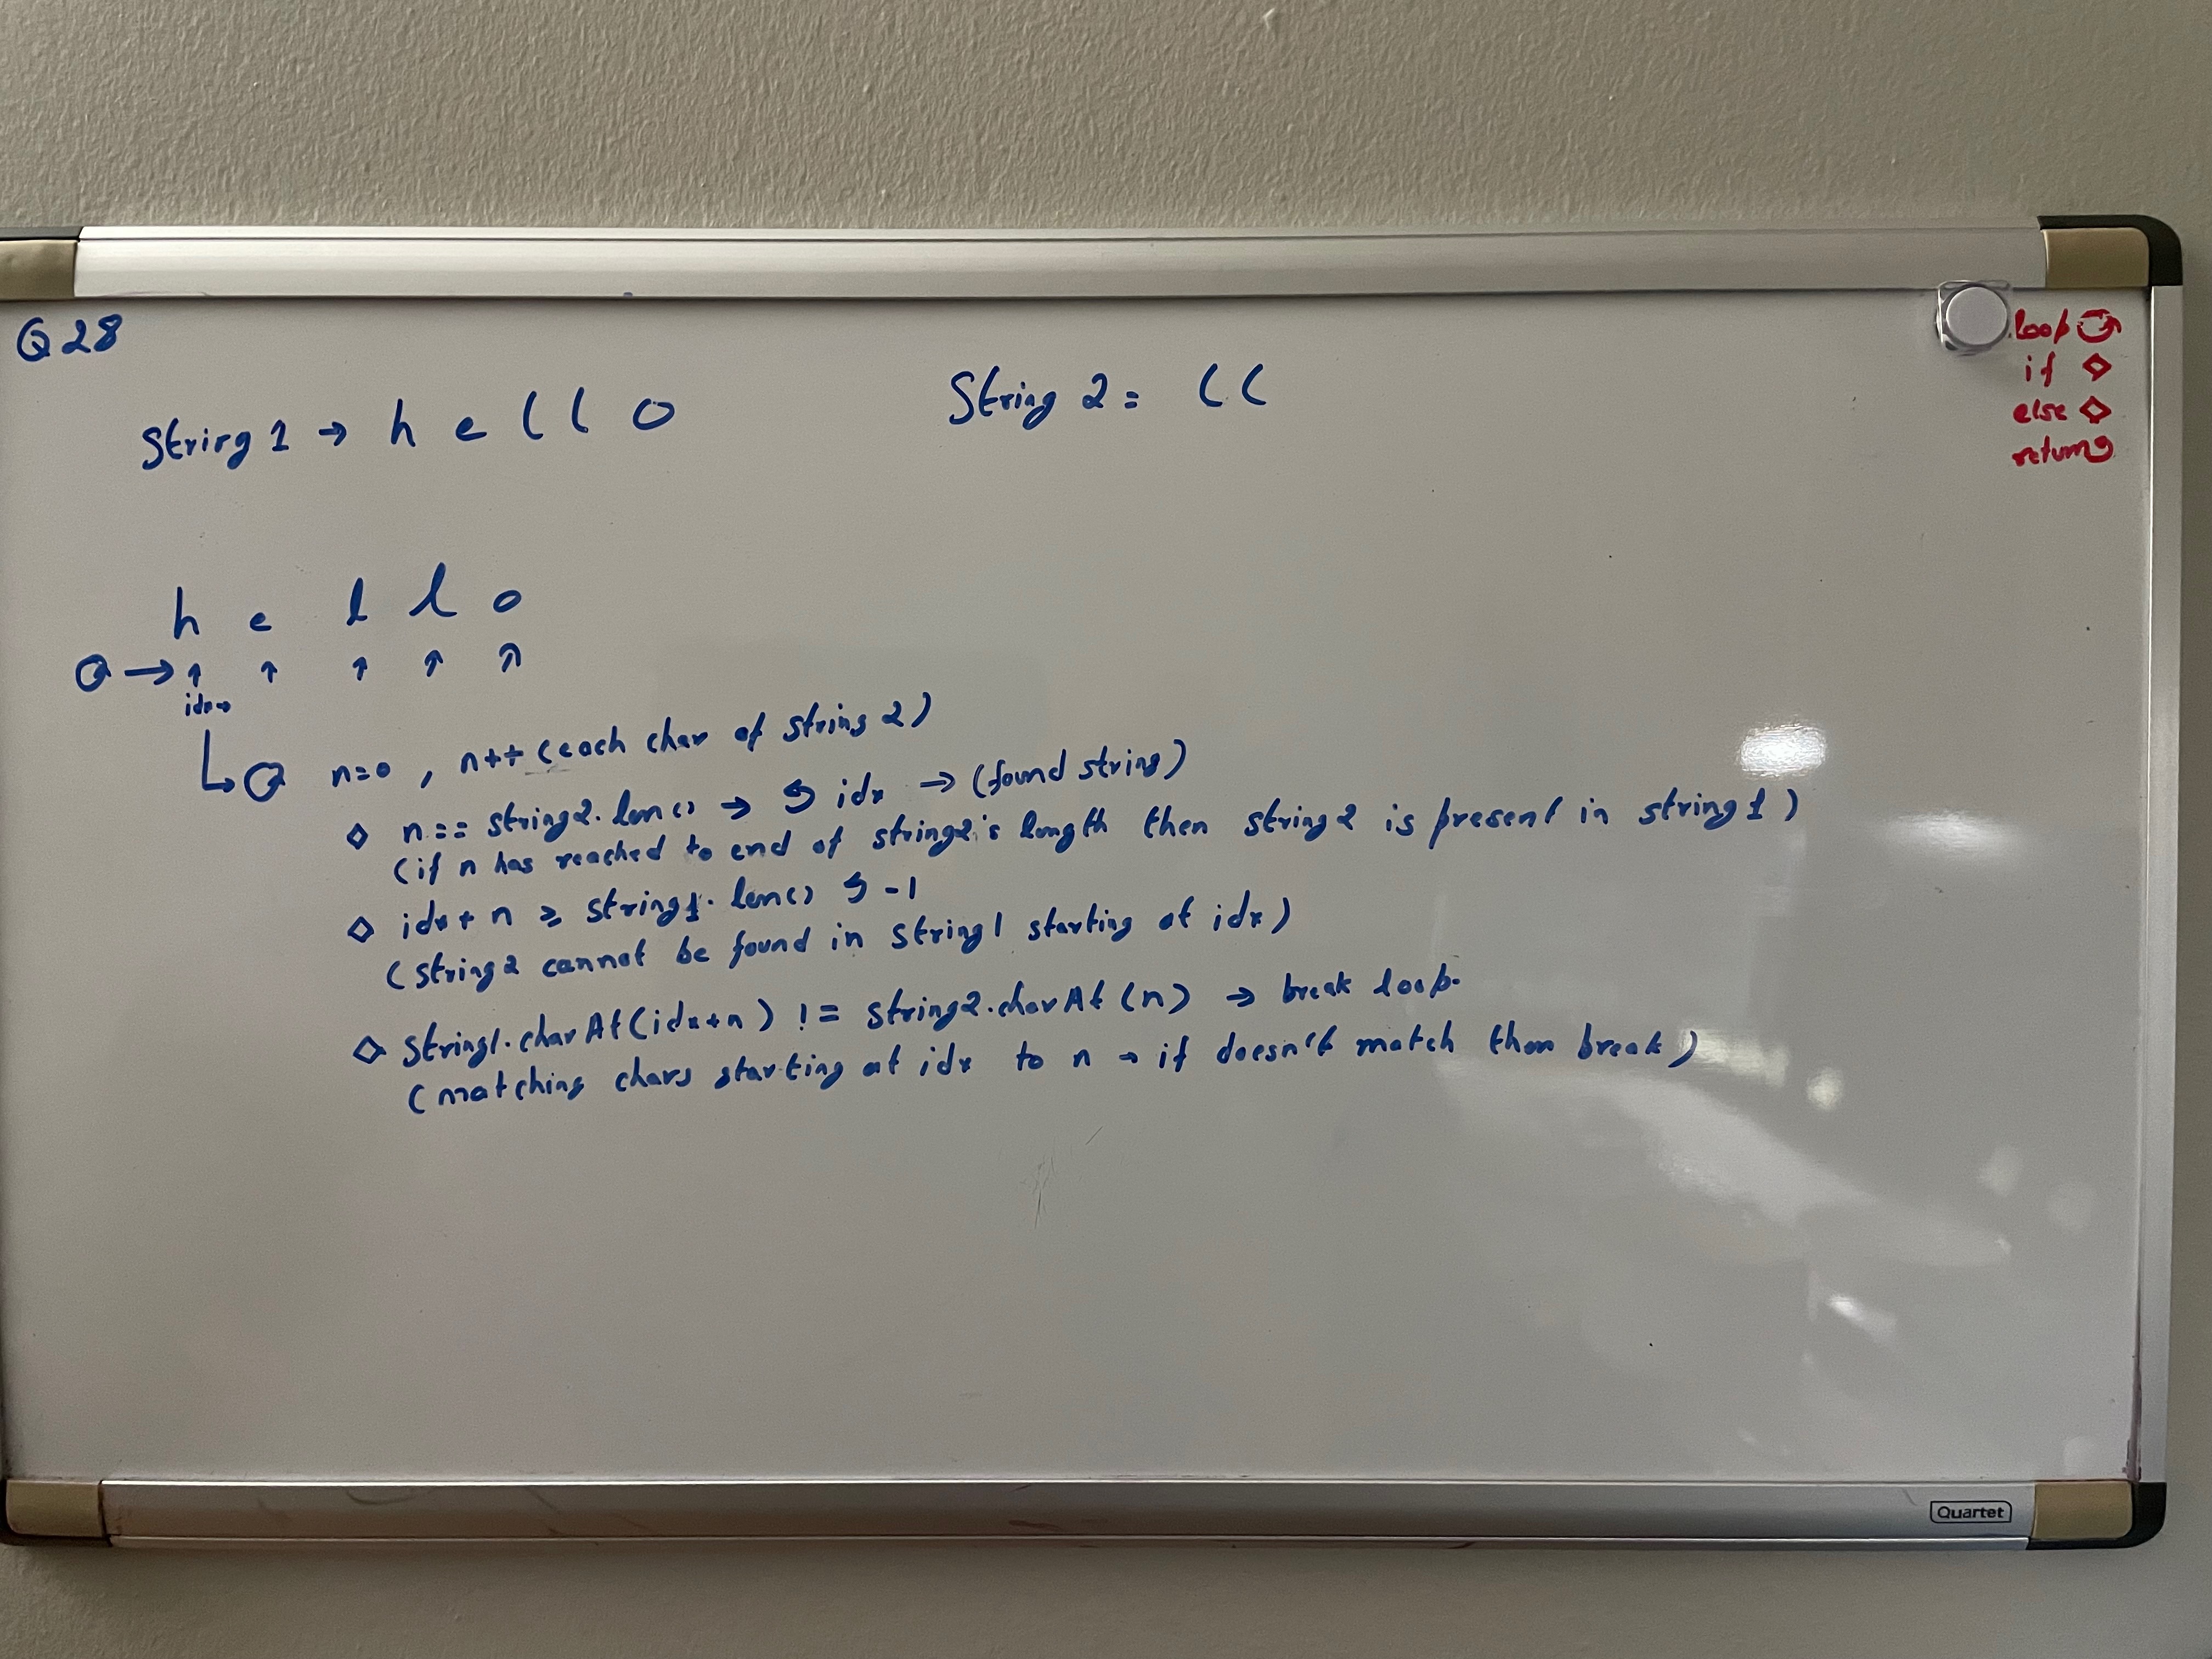 Q28
loop
if
else
return
String 1 → h e l l o
String 2 = l l
h e l l o
→ ↑ ↑ ↑ ↑ ↑
idx→
n=0 , n++ (each char of string 2)
n == string2.len() → idx → (found string)
(if n has reached to end of string2's length then string2 is present in string 1)
idx + n ≥ string1.len() -1
(string2 cannot be found in string1 starting at idx)
string1.charAt(idx+n) != string2.charAt(n) → break loop.
(matching chars starting at idx to n → if doesn't match then break)
Quartet